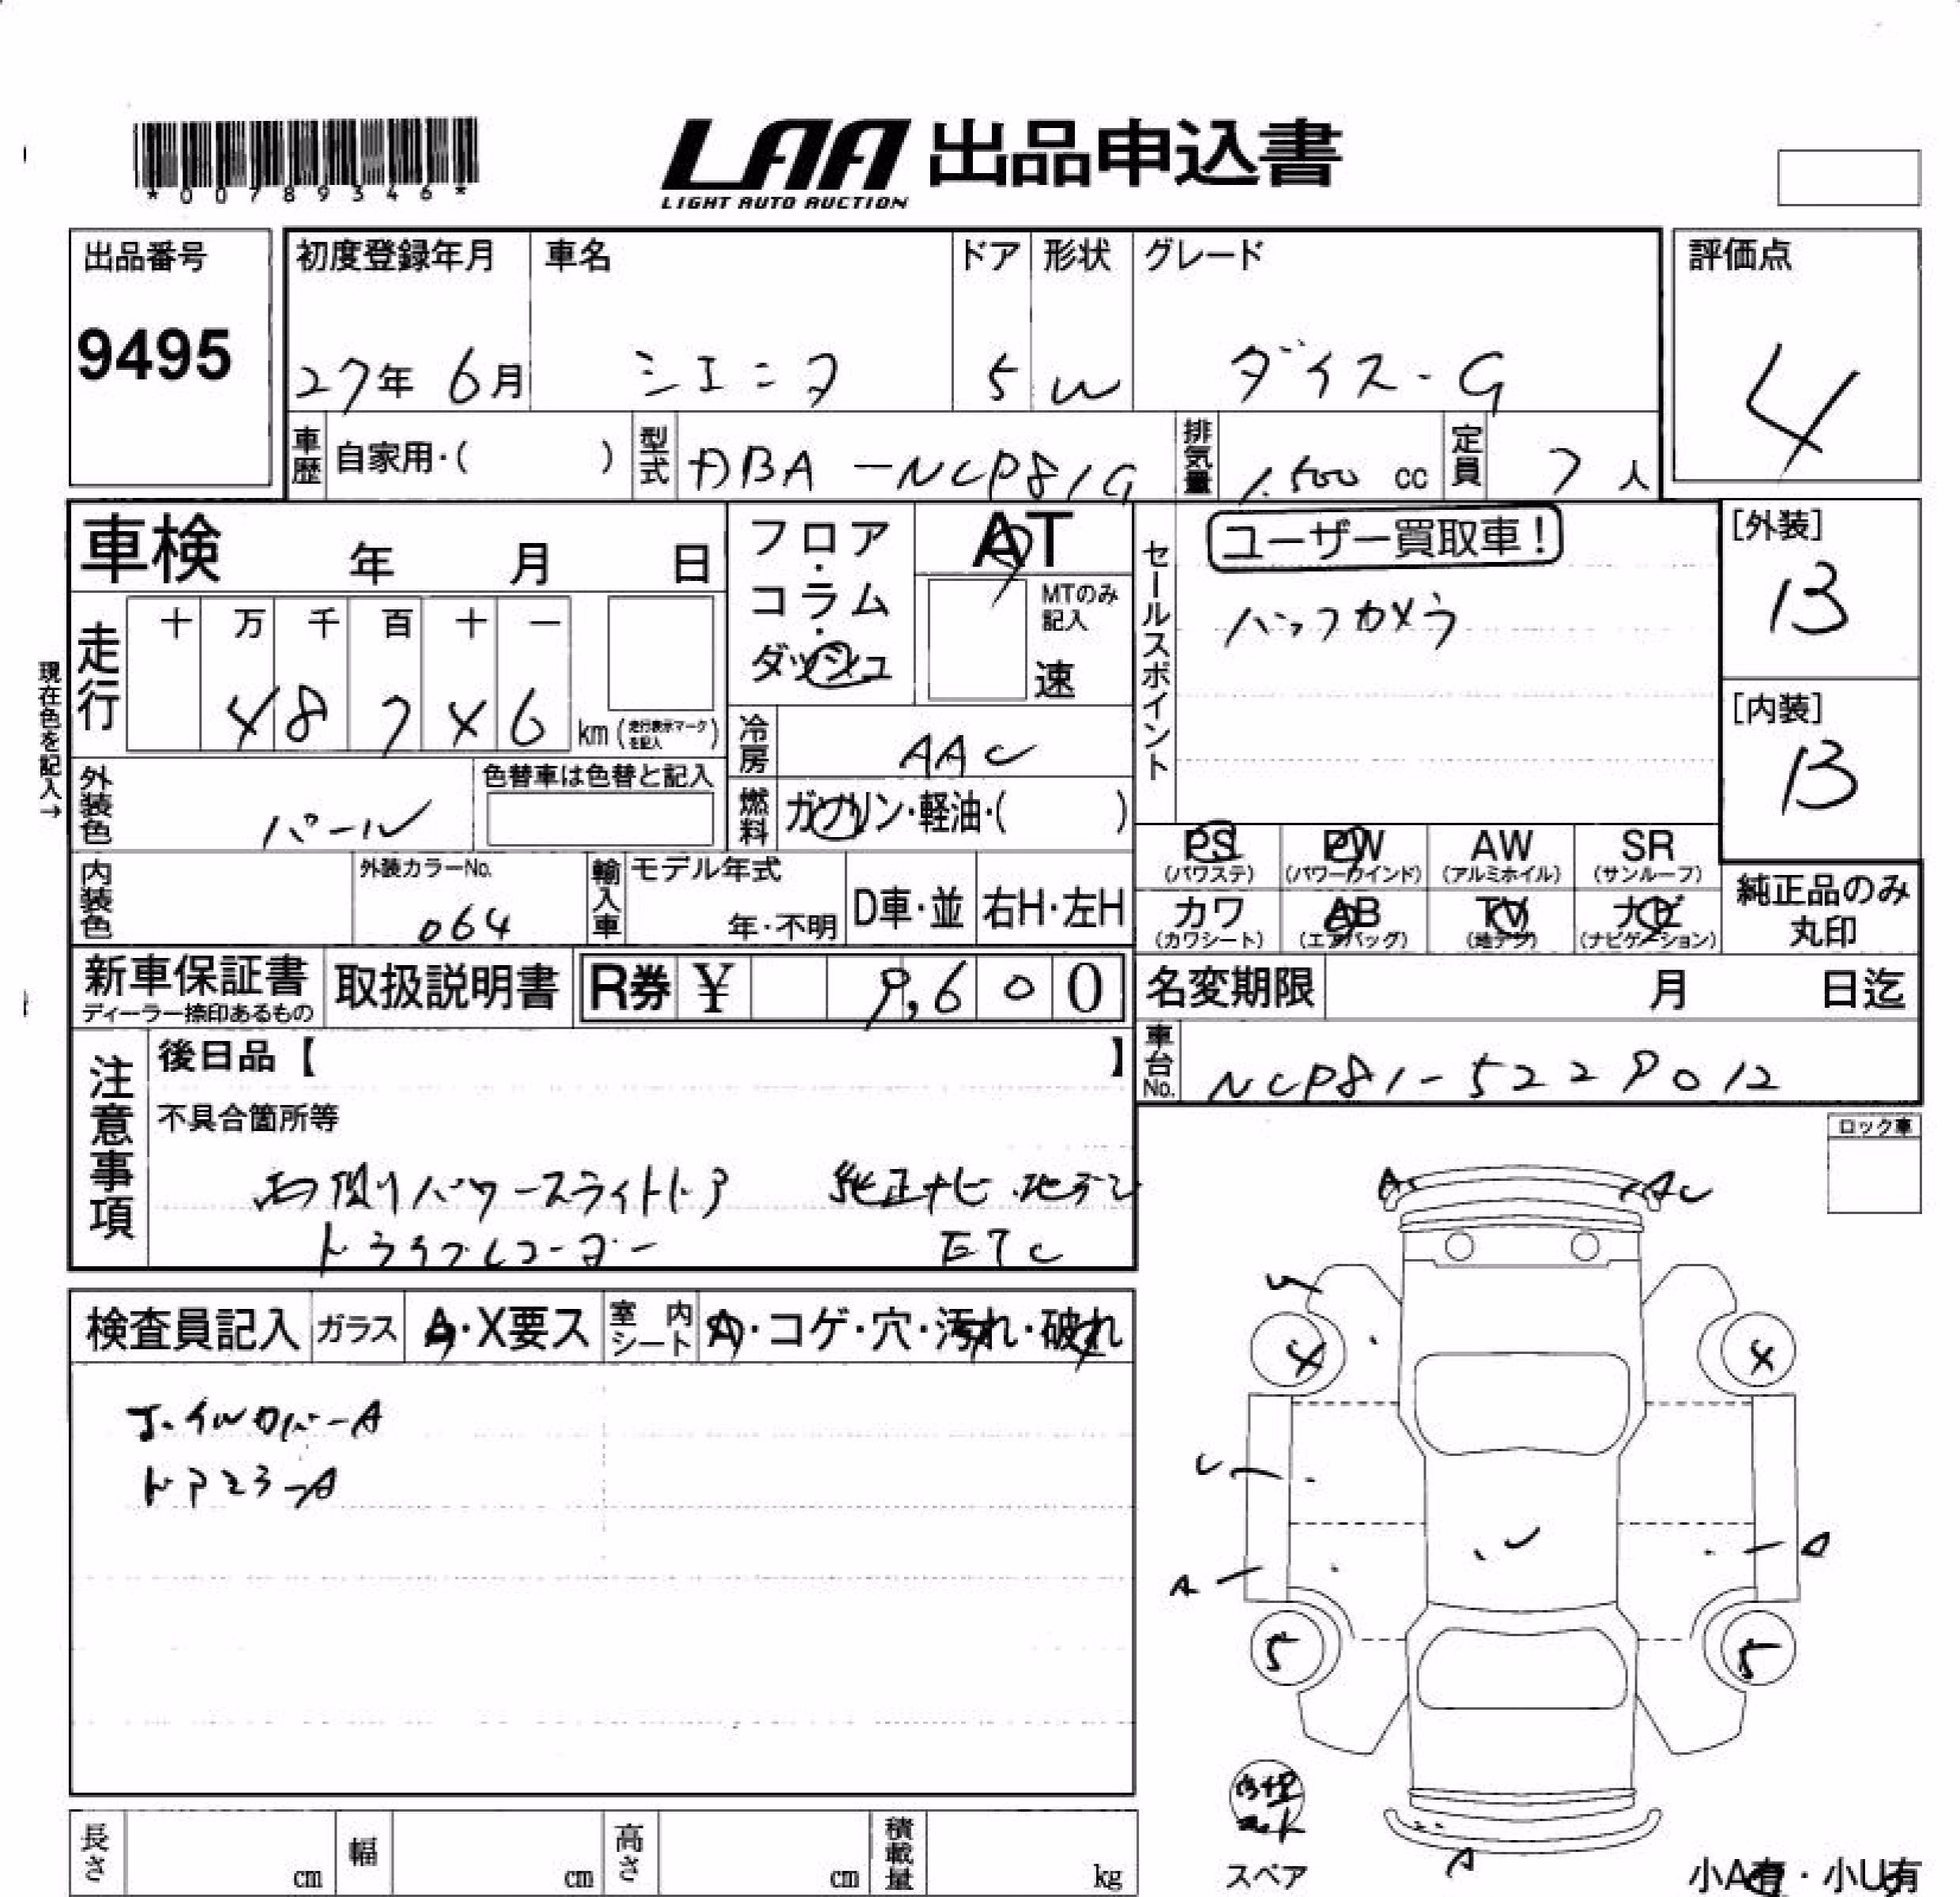 *00789346*
LAA 出品申込書
LIGHT AUTO AUCTION
出品番号
9495
初度登録年月
27年 6月
車名
シエンタ
ドア
5
形状
W
グレード
ダイス-G
評価点
4
車歴 自家用・( )
型式 DBA-NCP81G
排気量 1.500 cc
定員 7 人
車検 年 月 日
フロア・コラム・ダッシュ
AT
MTのみ記入
速
セールスポイント
ユーザー買取車!
バックカメラ
[外装]
B
[内装]
B
現在色を記入→
走行
十 万 千 百 十 一
4 8 7 4 6 km (走行表示マークを記入)
冷房 AAC
燃料 ガソリン・軽油・( )
外装色 パール
色替車は色替と記入
内装色
外装カラーNo.
064
輸入車 モデル年式
年・不明
D車・並 右H・左H
PS (パワステ)
PW (パワーウインド)
AW (アルミホイル)
SR (サンルーフ)
カワ (カワシート)
AB (エアバッグ)
TV (地デジ)
ナビ (ナビゲーション)
純正品のみ丸印
新車保証書
ディーラー捺印あるもの
取扱説明書
R券 ¥ 9,600
名変期限 月 日迄
車台No. NCP81-5229012
注意事項
後日品【 】
不具合箇所等
両側パワースライドドア 純正ナビ.地デジ
ドライブレコーダー ETC
ロック車
検査員記入 ガラス A・X要ス 室内シート A・コゲ・穴・汚れ・破れ
ホイルカバーA
ドアミラーA
A
A
U
4
4
U
U
A
A
5
5
A
スペア
長さ cm 幅 cm 高さ cm 積載量 kg
小A有・小U有